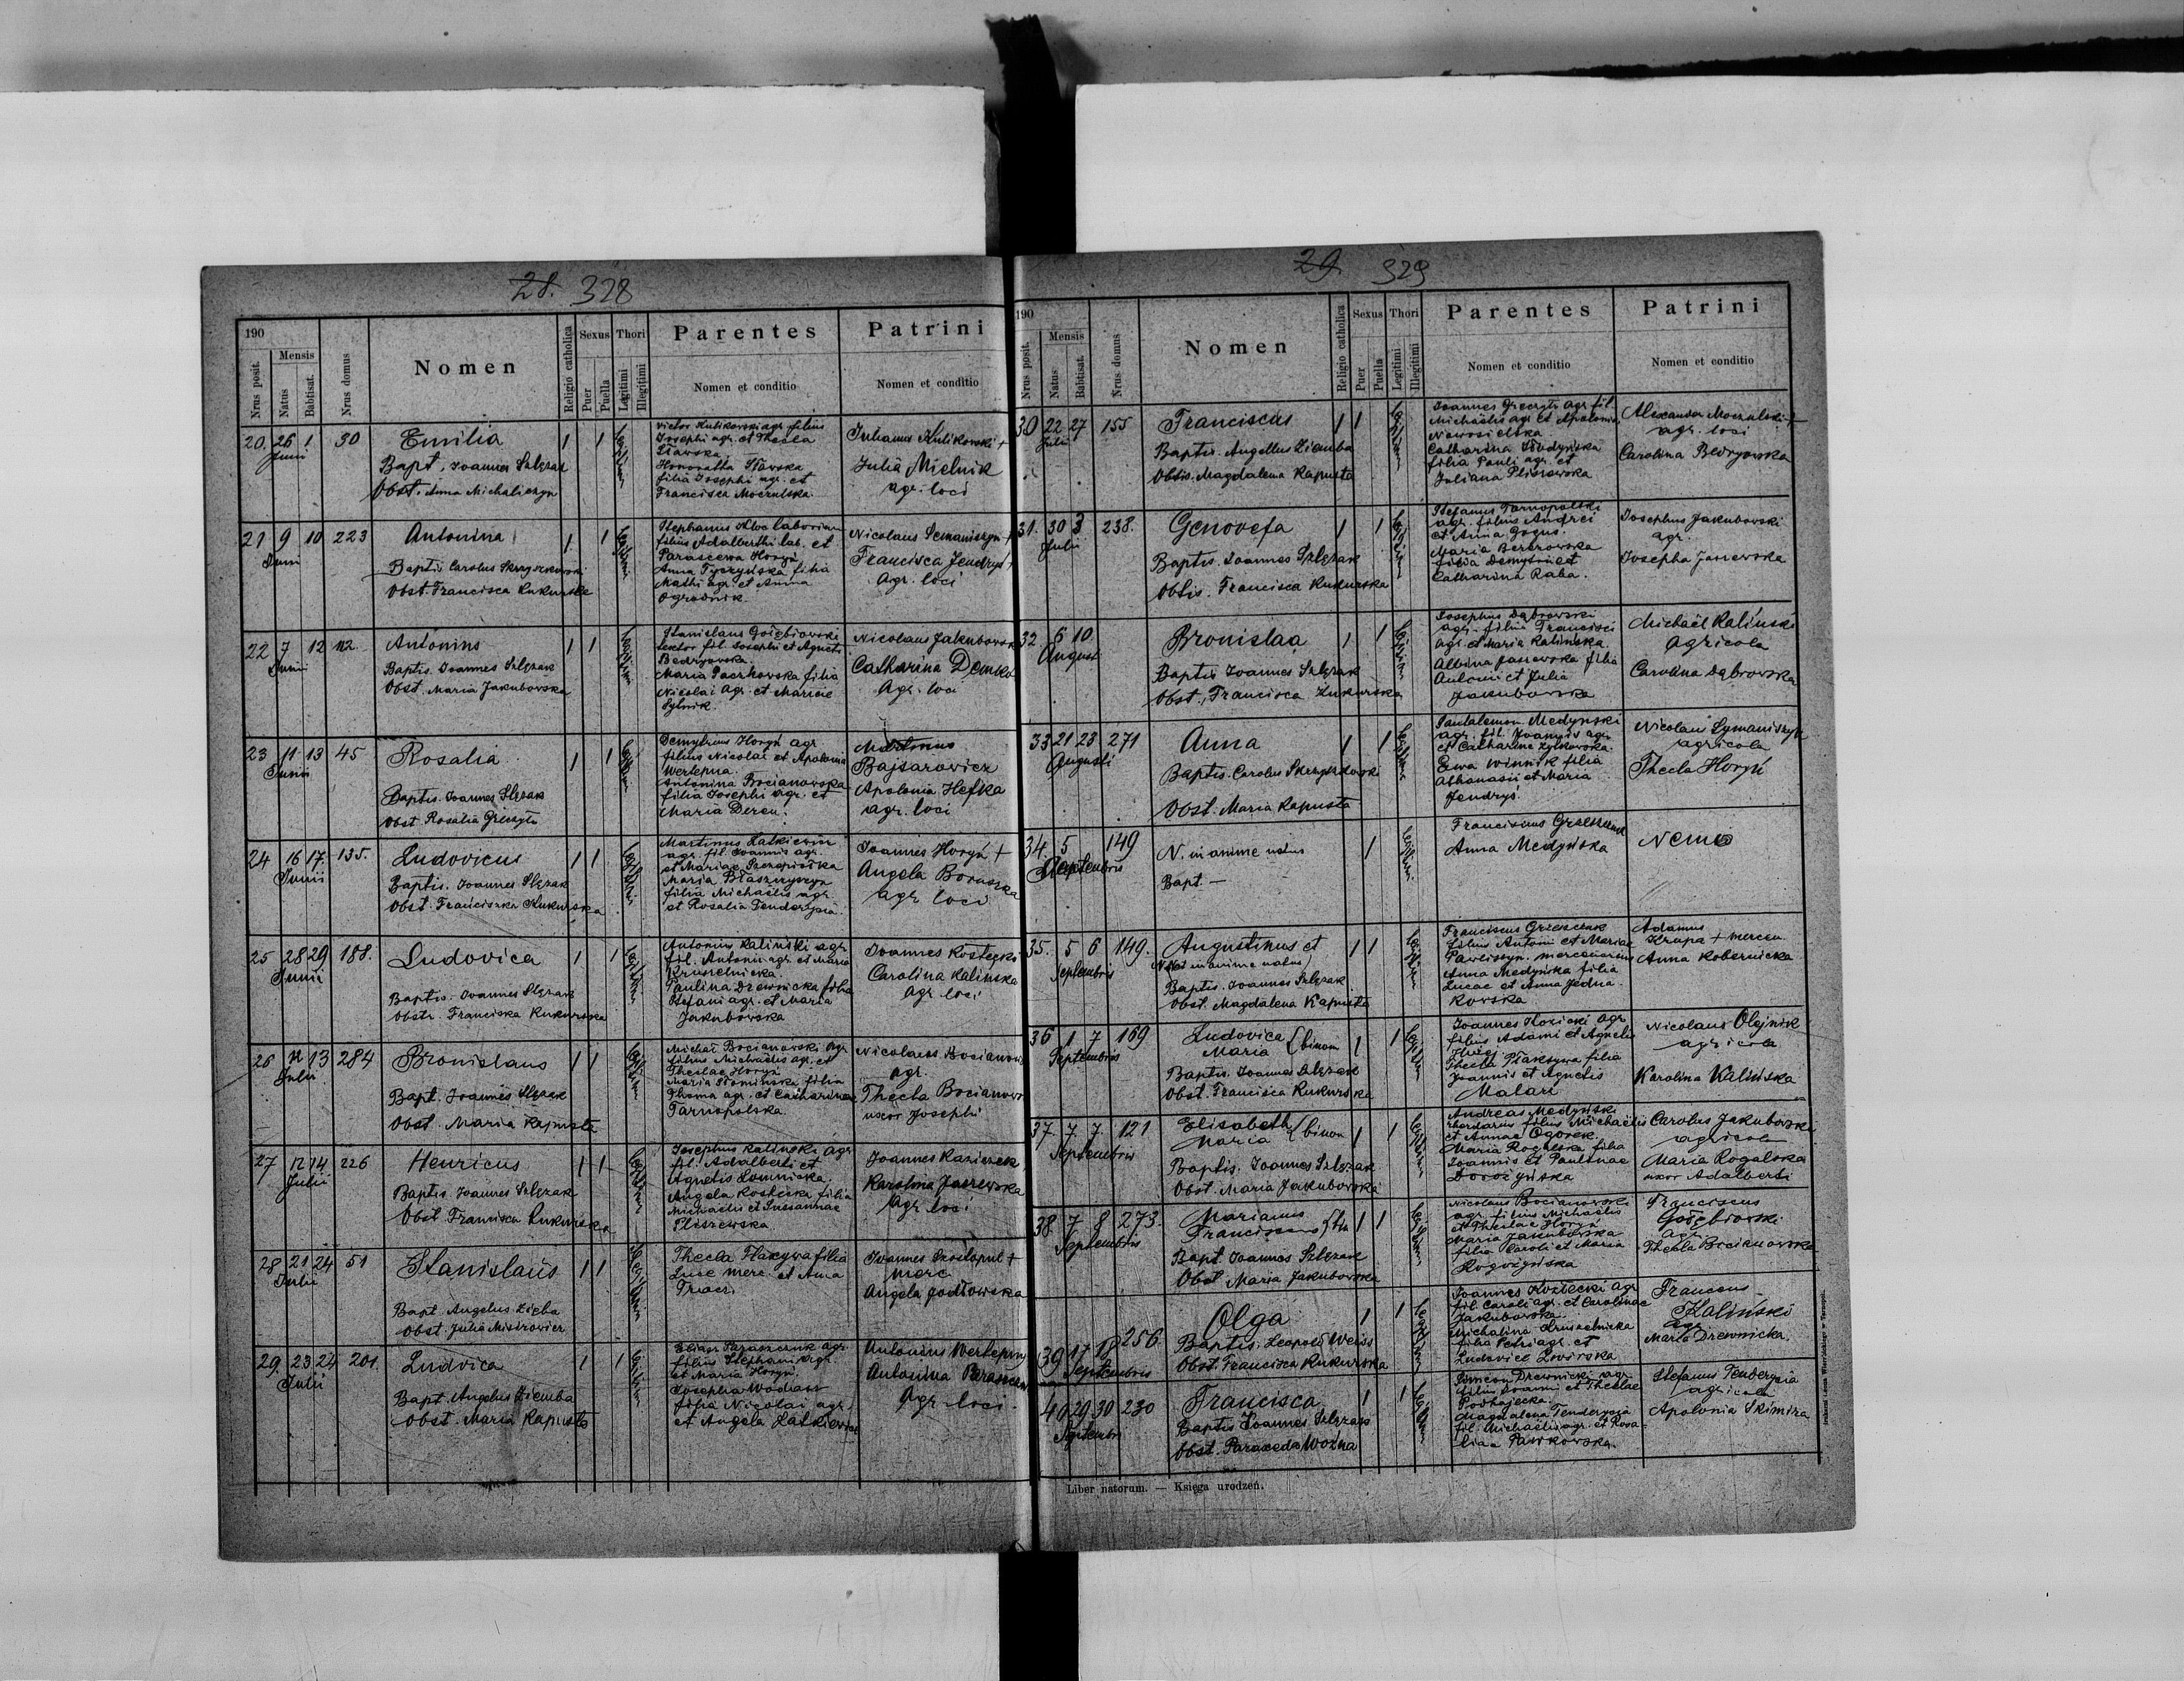 28. 328
190
Nrus posit.
Mensis
Natus
Babtisat.
Nrus domus
Nomen
Religio catholica
Sexus
Puer
Puella
Thori
Legitimi
Illegitimi
Parentes
Nomen et conditio
Patrini
Nomen et conditio
20. 26 1 30
Junii
Emilia
Bapt. Joannes Szlęzak
Obst. Anna Michaliczyn
1 1
Victor Kulikowski agr. filius
Josephi agr. et Thecla
Sławska
Honoratta Sławska
filia Josephi agr. et
Francisca Moczulska.
Julianus Kulikowski +
Julia Mielnik
agr. loci
21 9 10 223
Junii
Antonina
Baptis Carolus
Obst. Francisca Kukurska
1 1
filius Adalberthi lab. et
Parascewa Horyń
Anna Tyczyńska filia
Mathi agr. et Anna
Ogrodnik.
Nicolaus Semaniszyn +
Francisca Jendryś
Agr. loci
22 7 12 112
Junii
Antonius
Baptis. Joannes Szlęzak
Obst. Maria Jakubowska
1 1
Stanislaus Gołębiowski
fil. Josephi et Agnetis
Bedryowska
Maria Paczkowska filia
Nicolai agr. et Mariae
Sytnik.
Nicolaus Jakubowski
Catharina Demko
Agr. loci
23 11 13 45
Junii
Rosalia
Baptis. Joannes Slęzak
Obst Rosalia Greczyn
1 1
Demytrius Horyń agr
filius Nicolai et Apolonia
Wertepna.
Antonina Bocianowska
filia Josephi agr. et
Maria Deren.
Martinus
Bajsarowicz
Apolonia Hefka
agr. loci
24 16 17 135.
Junii
Ludovicus
Baptis. Joannes Slęzak
Obst. Franciszka Kukurska
1 1
Martinus Łatkiewicz
agr. fil. Joannis agr.
et Mariae
Maria Błaszczyszyn
filia Michaelis agr
et Rosalia Tenderycia.
Joannes Horyń +
Angela
agr loci
25 28 29 188.
Junii
Ludovica
Baptis. Joannes Slęzak
Obstr. Franciska Kukurska
1 1
Antonius Kaliński agr.
fil. Antonii agr. et Maria
Kruszelnicka.
Paulina Drewnicka filia
Stefani agr. et Maria
Jakubowska
Joannes Kostecki
Carolina Kalinska
agr. loci
26 12 13 284
Julii
Bronislaus
Bapt. Joannes Slęzak
Obst. Maria Kapusta
1 1
Michał Bocianowski agr
filius Michaelis agr. et
Theclae Horyń
Maria Słomińska filia
Thoma agr. et Catharinae
Tarnopolska
Nicolaus Bocianows
agr.
Thecla Bocianows
uxor Josephi
27 12 14 226
Julii
Henricus
Baptis Joannes Szlęzak
Obst Francisca Kukurska
1 1
Josephus Kaliński agr
fil. Adalberti et
Agnetis Łomnicka
Angela Kostecka filia
Michaelis et Sussannae
Pliszewska
Joannes Kazieczek
Karolina Jaszewska
Agr loci
28 21 24 51
Julii
Stanislaus
Bapt Angelus Zięba
Obst. Julia Misirowicz
1 1
Thecla Płaksywa filia
Luce merc. et Anna
Joannes +
merc
Angela Jodłowska
29. 23 24 201.
Julii
Ludvica
Bapt Angelus Ziemba
Obst. Maria Kapusta
1 1
Eliasz Paraszczuk agr.
filius Stephani agr.
et Maria Horyń.
Josepha
filia Nicolai agr.
et Angela Łatkiewicz
Antonius Wertepny
Antonina
Agr loci.
29. 329
190
Nrus posit.
Mensis
Natus
Babtisat.
Nrus domus
Nomen
Religio catholica
Sexus
Puer
Puella
Thori
Legitimi
Illegitimi
Parentes
Nomen et conditio
Patrini
Nomen et conditio
30 22 27 155
Julii
Franciscus
Baptis. Angellus Ziemba
Obstis. Magdalena Kapusta
1 1
Joannes Greczyn agr. fil.
Michaelis agr. et Apolonia
Nowosielska
Catharina
filia Pauli agr. et
Juliana Pliszewska
Alexander Moczulski +
agr. loci
Carolina Bedryowska
31. 30 3 238.
Julii
Genovefa
Baptis. Joannes Szlęzak
Obstis. Francisca Kukurska
1 1
Stefanus Tarnopolski
agr. filius Andrei
et Anna Gogus.
Maria Berezowska
filia Demytri et
Catharina Raba.
Josephus Jakubowski
agr.
Josepha Jaszewska
32 6 10
August
Bronislaa
Baptis Joannes Szlęzak
Obst. Francisca Kukurska
1 1
Josephus Dąbrowski
agr. filius Francisci
agr. et Maria Kalińska.
Albina Jaszewska filia
Antoni et Julia
Jakubowska
Michaël Kaliński
Agricola
Carolina Dąbrowska
33 21 23 271
Augusti
Anna
Baptis. Carolus
Obst. Maria Kapusta
1 1
Pantalemon Medyński
agr. fil. Joannis agr
et Catharine Zytkowska.
Ewa Winnik filia
Athanasii et Maria
Jendryś.
Nicolaus Symaniszyn
agricola
Thecla Horyń
34. 5 149
Septembris
N. inanime natus
Bapt. —
1
Franciscus
Anna Medyńska
Nemo
35. 5 6 149.
Septembris
Augustinus et
Baptis. Joannes Szlęzak
Obst. Magdalena Kapusta
1 1
Franciscus
filius Antoni et Mariae
Pawliszyn. mercenarius
Anna Medyńska filia
Lucae et Anna Jedna-
Kowska
Adamus
Krupa + mercen.
Anna Kobernicka
36 1 7 169
Septembris
Ludovica
Maria { binom
Baptis. Joannes Szlęzak
Obst. Francisca Kukurska
1 1
Joannes Kozicki agr
filius Adami et Agnetis
Thecla Płaksywa filia
Joannis et Agnetis
Malari
Nicolaus Olejnik
agricola
Karolina Kalińska
37. 7. 7. 121
Septembris
Elisabeth
Maria { binom
Baptis. Joannes Szlęzak
Obst. Maria Jakubowska
1 1
Andreas Medyński
filius Michaelis
et Annae Ogorek.
Maria Rogalska filia
Joannis et Paulinae
Dorożyńska
Carolus Jakubowski
agricola
Maria Rogalska
uxor Adalberti
38. 7 8 273.
Septembris
Marianus
Franciscus
Bapt. Joannes Szlęzak
Obst. Maria Jakubowska
1 1
Nicolaus Bocianowski
agr. filius Michaelis
et Theclae Horyń
Maria Jakubowska
filia Caroli et Maria
Franciscus
Gołębiowski
agr.
Thecla Bocianowska
39 17 18 256
Septembris
Olga
Baptis. Leopold Weiss
Obst. Francisca Kukurska
1 1
Joannes Kostecki agr
fil. Caroli agr. et Carolinae
Jakubowska
Michalina Kruszelnicka
filia Petri agr. et
Ludovice
Kaliński
agr
Maria Drewnicka.
40 29 30 230
Septembris
Francisca
Baptis Joannes Szlęzak
Obst. Paraxeda Woźna
1 1
Simeon Drewnicki agr
filius Joanni et Theclae
Podhajecka.
Magdalena Tenderycia
fil. Michaelis agr. et Rosa-
liae Pawkowska.
Stefanus Tenderycia
agricola
Apolonia Skimira
Liber natorum. — Księga urodzeń.